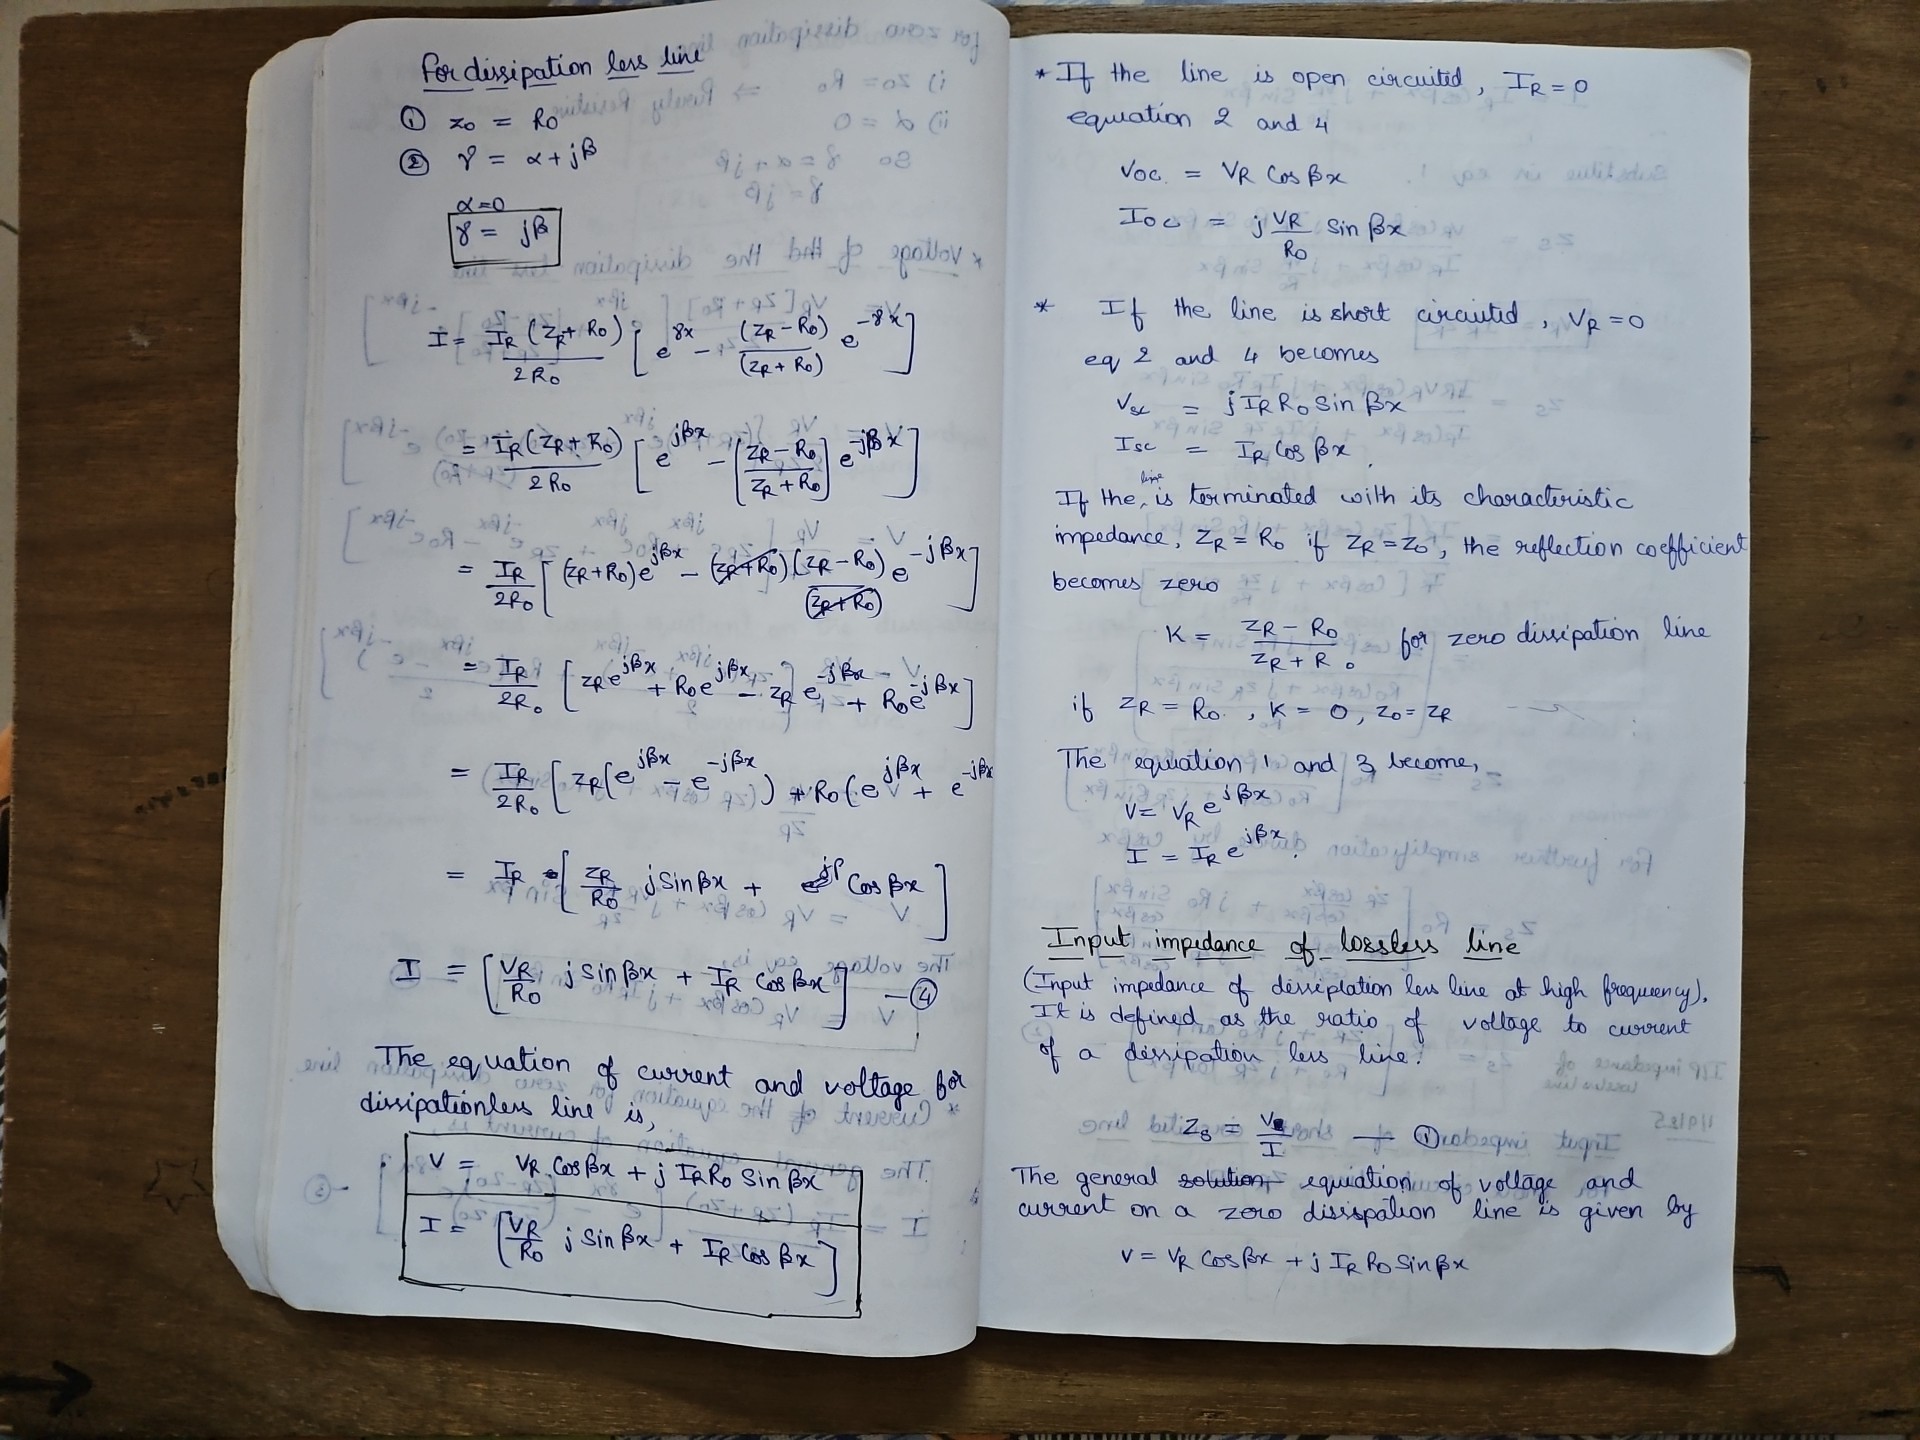 For dissipation less line
① z₀ = R₀
② γ = α + jβ
α=0
γ = jβ
I = I_R (Z_R + R₀) / 2R₀ [ e^{γx} − (Z_R − R₀) / (Z_R + R₀) e^{−γx} ]
= I_R (Z_R + R₀) / 2R₀ [ e^{jβx} − [ Z_R − R₀ / Z_R + R₀ ] e^{−jβx} ]
= I_R / 2R₀ [ (Z_R+R₀) e^{jβx} − (Z_R+R₀) (Z_R − R₀) / (Z_R+R₀) e^{−jβx} ]
= I_R / 2R₀ [ Z_R e^{jβx} + R₀e^{jβx} − Z_R e^{−jβx} + R₀e^{−jβx} ]
= I_R / 2R₀ [ Z_R (e^{jβx} − e^{−jβx}) + R₀ (e^{jβx} + e^{−jβx}
= I_R [ Z_R / R₀ j Sin βx + Cos βx ]
I = [ V_R / R₀ j Sin βx + I_R Cos βx ] — ④
The equation of current and voltage for
dissipationless line is,
V = V_R Cos βx + j I_R R₀ Sin βx
I = [ V_R / R₀ j Sin βx + I_R Cos βx ]
* If the line is open circuited, I_R = 0
equation 2 and 4
Voc. = V_R Cos βx
Ioc = j V_R / R₀ Sin βx
* If the line is short circuited, V_R = 0
eq 2 and 4 becomes
Vsc = j I_R R₀ Sin βx
Isc = I_R Cos βx.
If the line is terminated with its characteristic
impedance, Z_R = R₀ if Z_R = Z₀, the reflection coefficient
becomes zero
K = Z_R − R₀ / Z_R + R₀ for zero dissipation line
if Z_R = R₀., K = 0, Z₀ = Z_R
The equation 1 and 3 become,
V = V_R e^{jβx}
I = I_R e^{jβx}.
Input impedance of lossless line
(Input impedance of dessiptation less line at high frequency).
It is defined as the ratio of voltage to current
of a dissipation less line.
Z_s = V / I — ①
The general solution equation of voltage and
current on a zero dissipation line is given by
V = V_R Cos βx + j I_R R₀ Sin βx